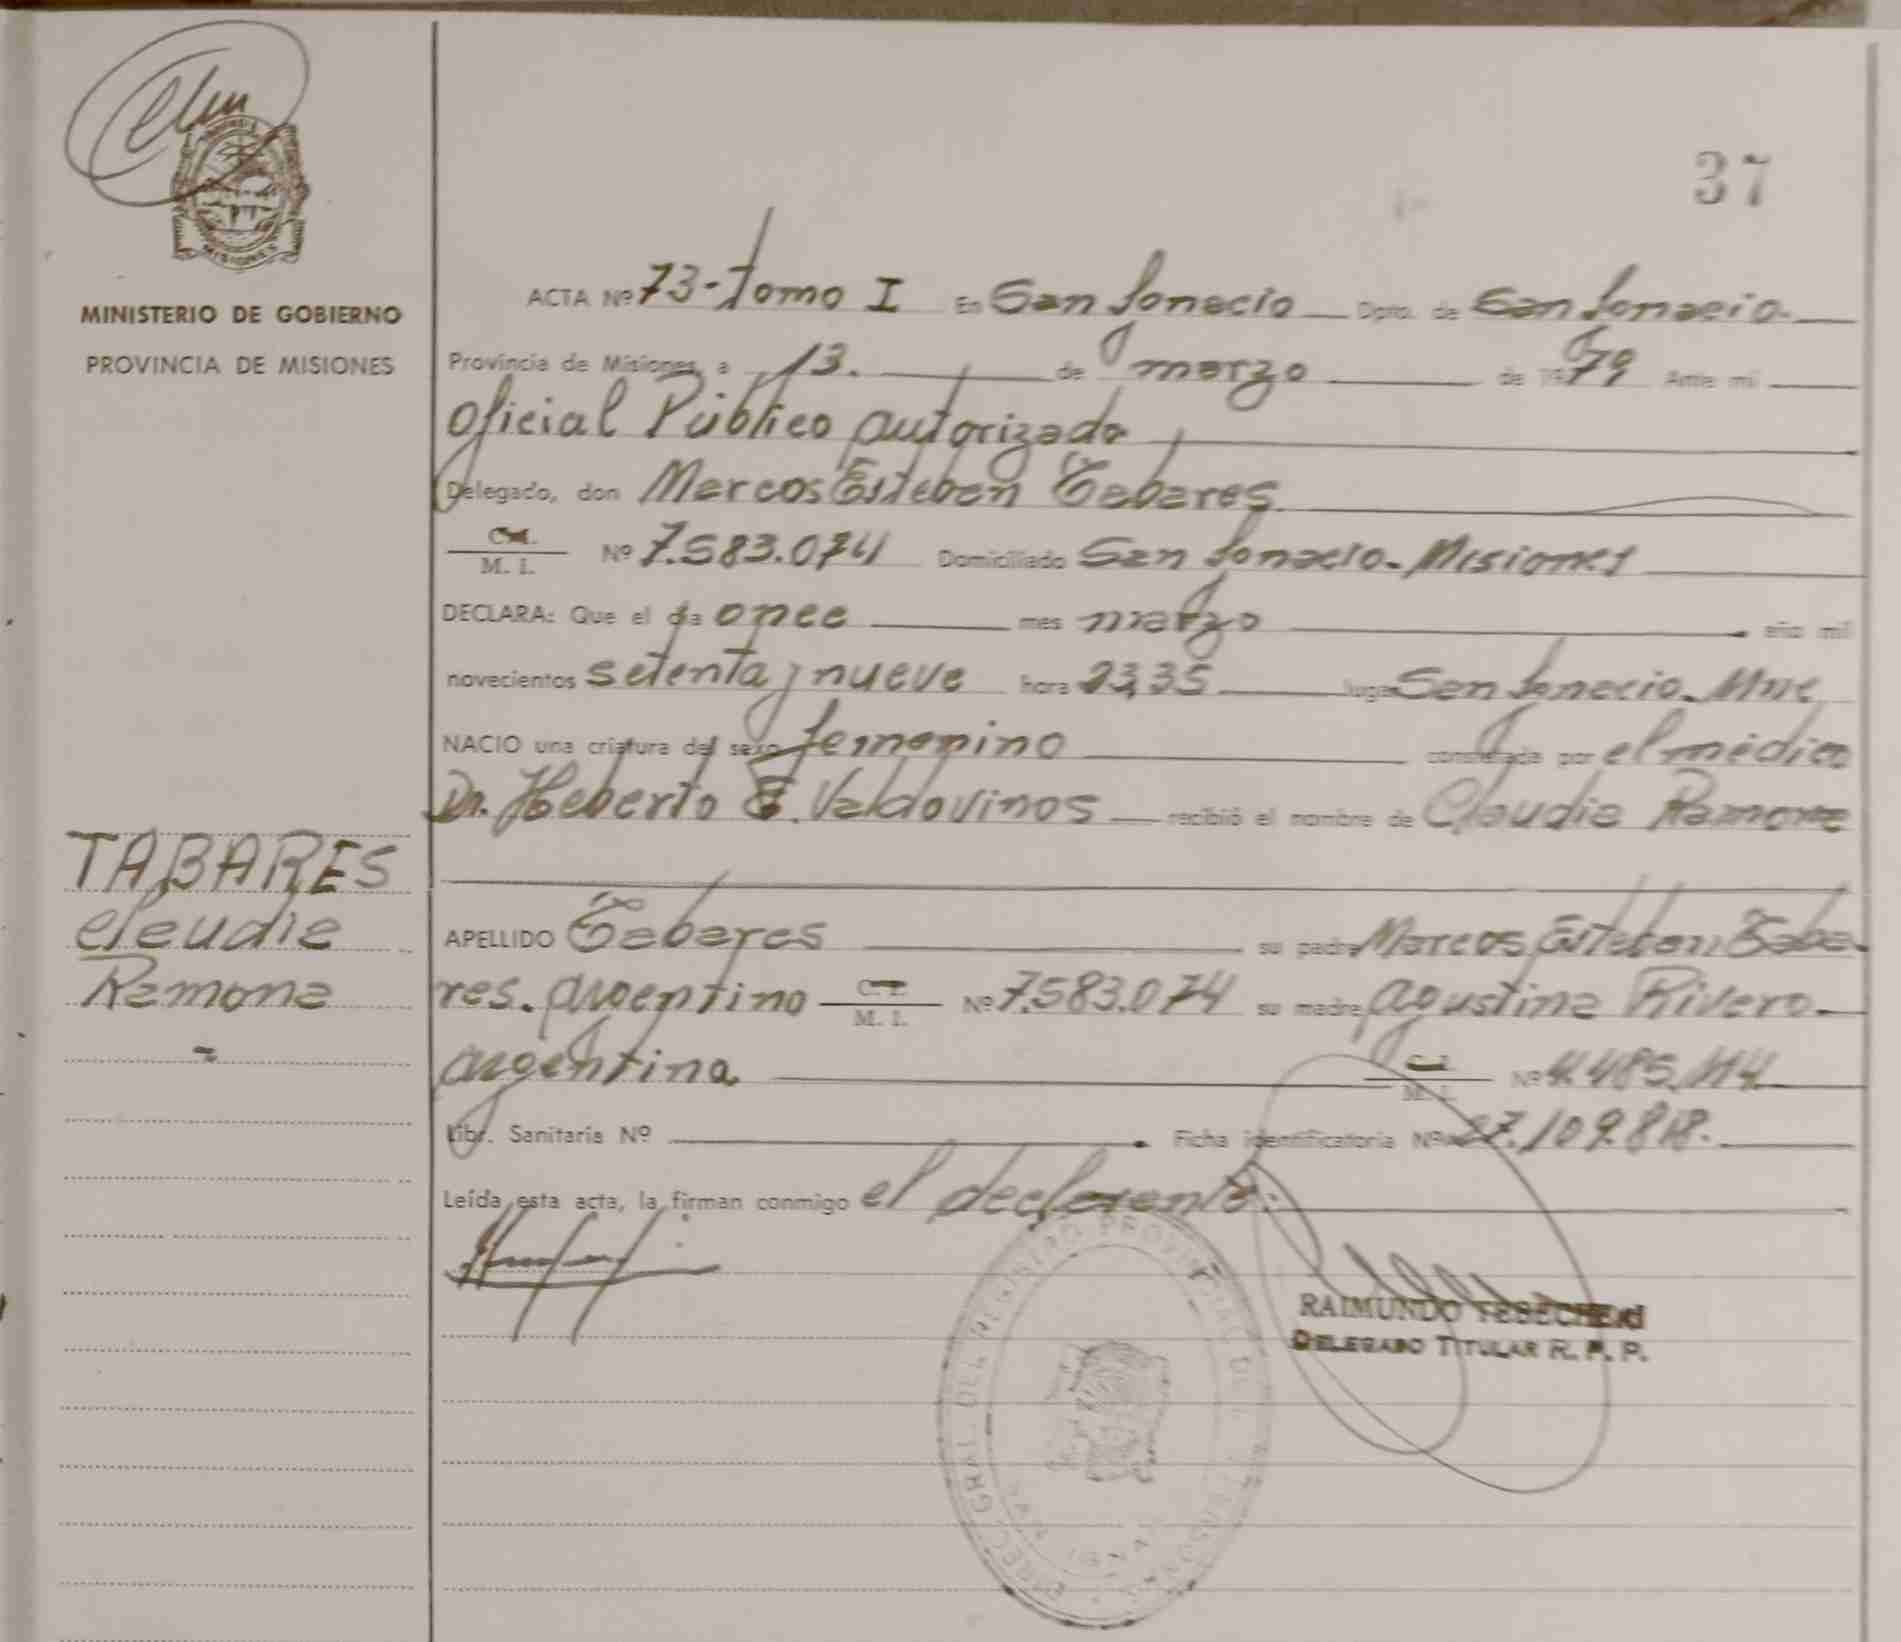 37
ACTA Nº 73-Tomo I En San Ignacio Dpto. de San Ignacio.
Provincia de Misiones, a 13. de marzo de 1979 Ante mí
Oficial Público autorizado
Delegado, don Marcos Esteban Tabares.
C.I.
M. I. Nº 7.583.074 Domiciliado San Ignacio. Misiones
DECLARA: Que el día once mes marzo año mil
novecientos setenta y nueve hora 23,35 lugar San Ignacio. Mnes
NACIO una criatura del sexo femenino constatada por el médico
Dr. Heberto E. Valdovinos recibió el nombre de Claudia Ramona
APELLIDO Tabares su padre Marcos Esteban Taba-
res. argentino C. I. M. I. Nº 7.583.074 su madre Agustina Rivero.
argentina C. I. M. I. Nº 4.485.114
Libr. Sanitaria Nº Ficha identificatoria Nº 27.109.818.
Leída esta acta, la firman conmigo el declarante.
RAIMUNDO
DELEGADO TITULAR R. P. P.
MISIONES
MINISTERIO DE GOBIERNO
PROVINCIA DE MISIONES
TABARES
Claudia
Ramona
-
DIREC. GRAL. DEL REGISTRO PROVINCIAL DE LAS PERSONAS